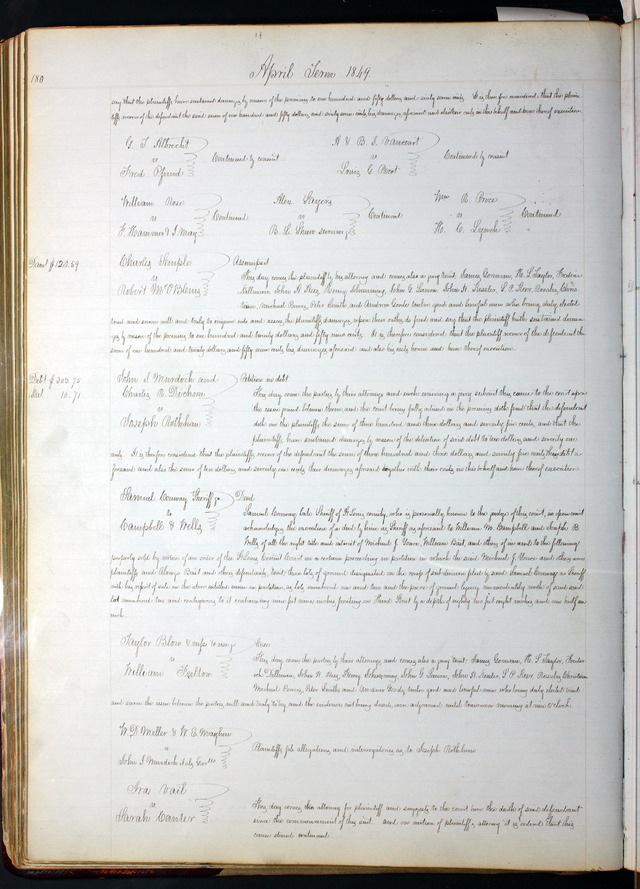 180
April Term 1849
say that the plaintiffs have sustained damages by reason of the premises to one hundred and fifty dollars and sixty seven cents. It is therefore considered that the plain-
tiffs recover of the defendant the said sum of one hundred and fifty dollars and sixty seven cents his damages aforesaid and also their costs in this behalf and have thereof execution
G. T. Albrecht
vs
Fred Pfund
Continued by consent
A & B. J. Vancourt
vs
Louis G. Picot
Continued by consent
William Rose
vs
F. Hammer & J. May
Continued
Alex. Sayers
vs
B. L.
Continued
Wm R. Price
vs
H. C. Lynch
Continued
Dam $ 120.59
Charles Semple
vs
Robert McO'Blenis
Assumpsit
This day comes the plaintiff by his attorney and comes also a jury to wit: James Gorman, N. S. Taylor, Frederick
John H. Henry John G. John H. S. P. Christian
Michael Peter Smith and Andrew twelve good and lawful men who being duly elected
tried and sworn well and truly to inquire into and assess the plaintiffs damages upon their oaths do find and say that the plaintiff hath sustained dama-
ges by reason of the premises to one hundred and twenty dollars and fifty nine cents. It is therefore considered that the plaintiff recover of the defendant the
sum of one hundred and twenty dollars and fifty nine cents his damages aforesaid and also his costs herein and have thereof execution.
Debt $ 303.75
Dam 10.71
John J. Murdoch and
Charles K. Dickson
vs
Joseph Rothchan
Petition in debt
This day come the parties by their attorneys and each waiving a jury submit this cause to the court upon
the issue joined between them and the court being fully advised in the premises doth find that the defendant
doth owe the plaintiffs the sum of three hundred and three dollars and seventy five cents and that the
plaintiffs have sustained damages by reason of the detention of said debt to ten dollars and seventy one
cents. It is therefore considered that the plaintiffs recover of the defendant the sum of three hundred and three dollars and seventy five cents their debt a-
foresaid and also the sum of ten dollars and seventy one cents their damages aforesaid together with their costs in this behalf and have thereof execution
Samuel Conway Sheriff
to
Campbell & Wells
Deed
Samuel Conway late Sheriff of St Louis county, who is personally known to the judge of this court, in open court
acknowledges the execution of a deed by him as Sheriff as aforesaid to William M. Campbell and Joseph B.
Wells of all the right title and interest of Michael J. William Bird, and others of in and to the following
property sold by virtue of an order of the St Louis Circuit Court in a certain proceeding in partition in which the said Michael J. and others were
plaintiffs and Bird and others defendants, to wit: two lots of ground designated on the map of sub division filed by said Samuel Conway as Sheriff
with his report of sale in the above entitled cause in partition, as lots numbered one and two and the piece of ground lying immediately north of and said
lot numbered two and contiguous to it containing nine feet inches fronting on Third Street by a depth of eighty two feet eight inches and one half an
inch.
Taylor Blow
vs
William
Case
This day come the parties by their attorneys and comes also a jury to wit: James Gorman, N. S. Taylor, Freder-
ick John H. Henry John G. John H. S. P. Christian
Michael Peter Smith and Andrew twelve good and lawful men who being duly elected tried
and sworn the issue between the parties well and truly to try and the evidence not being closed, were adjourned until tomorrow morning at nine o'clock
W D Miller & W. E.
vs
John J. Murdoch
Plaintiffs file allegations and interrogatories as to Joseph Rothchan
Ira Vail
vs
Sarah Canter
This day comes the attorney for plaintiff and suggests to the court here the death of said defendant
since the commencement of this suit and on motion of plaintiffs attorney it is ordered that this
cause stand continued